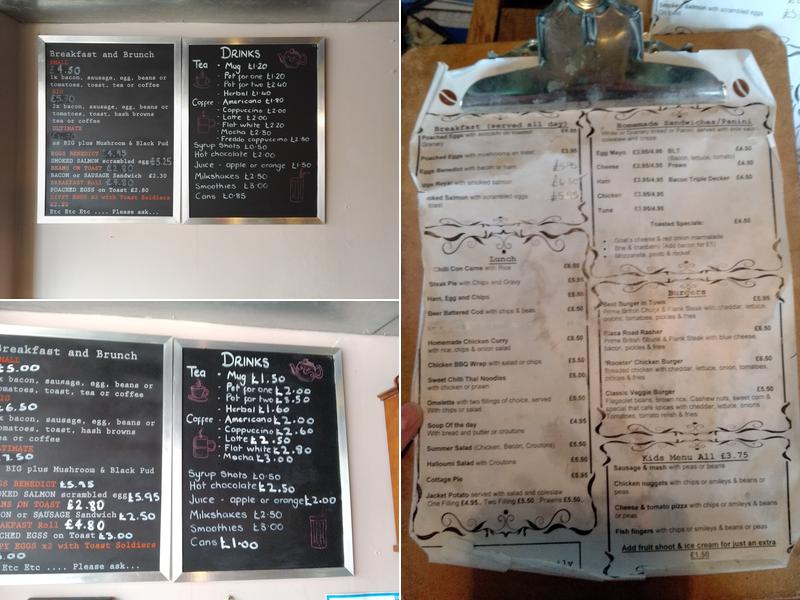 Breakfast and Brunch
SMALL
£4.50
1x bacon, sausage, egg, beans or
tomatoes, toast, tea or coffee
BIG
£5.50
2x bacon, sausage, egg, beans or
tomatoes, toast, hash browns
tea or coffee
ULTIMATE
as BIG plus Mushroom & Black Pud
EGGS BENEDICT £4.95
SMOKED SALMON scrambled egg £5.25
BEANS ON TOAST £2.80
BACON or SAUSAGE Sandwich £2.30
BREAKFAST Roll £4.80
POACHED EGGS on Toast £2.80
DIPPY EGGS x2 with Toast Soldiers
£2.80
Etc Etc Etc .... Please ask...
DRINKS
Tea • Mug £1.20
• Pot for one £1.20
• Pot for two £2.40
• Herbal £1.40
Coffee • Americano £1.80
• Cappuccino £2.00
• Latte £2.00
• Flat white £2.20
• Mocha £2.50
• Freddo cappuccino £2.50
Syrup Shots £0.50
Hot chocolate £2.00
Juice - apple or orange £1.50
Milkshakes £2.50
Smoothies £3.00
Cans £0.85
Breakfast and Brunch
SMALL
£5.00
bacon, sausage, egg, beans or
tomatoes, toast, tea or coffee
£6.50
bacon, sausage, egg, beans or
tomatoes, toast, hash browns
or coffee
ULTIMATE
.50
BIG plus Mushroom & Black Pud
EGGS BENEDICT £5.95
SMOKED SALMON scrambled egg £5.95
BEANS ON TOAST £2.80
BACON or SAUSAGE Sandwich £2.50
BREAKFAST Roll £4.80
POACHED EGGS on Toast £3.00
DIPPY EGGS x2 with Toast Soldiers
Etc Etc .... Please ask...
DRINKS
Tea • Mug £1.50
• Pot for one £2.00
• Pot for two £3.50
• Herbal £1.60
Coffee • Americano £2.00
• Cappuccino £2.60
• Latte £2.50
• Flat white £2.80
• Mocha £3.00
Syrup Shots £0.50
Hot chocolate £2.50
Juice - apple or orange £2.00
Milkshakes £2.50
Smoothies £3.00
Cans £1.00
Salmon with scrambled eggs
Breakfast (served all day)
Poached Eggs with avocado on toasted
Granary
Poached Eggs with mushrooms on toast £3.95
Eggs Benedict with bacon or ham £5.95
Eggs Royal with smoked salmon
Smoked Salmon with scrambled eggs
toast
Lunch
Chilli Con Carne with Rice
Steak Pie with Chips and Gravy
Ham, Egg and Chips
Beer Battered Cod with chips & peas
Homemade Chicken Curry £6.50
with rice, chips & onion salad
Chicken BBQ Wrap with salad or chips £5.50
Sweet Chilli Thai Noodles £5.00
with chicken or prawn
Omelette with two fillings of choice, served £5.50
With chips or salad
Soup Of the day £4.95
With bread and butter or croutons
Summer Salad (Chicken, Bacon, Croutons) £5.50
Halloumi Salad with Croutons £5.50
Cottage Pie £5.95
Jacket Potato served with salad and coleslaw
One Filling £4.95.. Two Filling £5.50 ..Prawns £5.50..
Homemade Sandwiches/Panini
White or Granary bread or Panini, served with side salad,
coleslaw and crisps
Egg Mayo £3.95/4.95 BLT £4.50
(Bacon, lettuce, tomato)
Cheese £3.95/4.95 Prawn £4.50
Ham £3.95/4.95 Bacon Triple Decker £4.50
Chicken £3.95/4.95
Tuna £3.95/4.95
Toasted Specials: £4.50
• Goat's cheese & red onion marmalade
• Brie & cranberry (Add bacon for £5)
• Mozzarella, pesto & rocket
Burgers
Best Burger in Town £5.95
Prime British Chuck & Flank Steak with cheddar, lettuce,
onions, tomatoes, pickles & fries
Flaca Road Rasher £6.50
Prime British Chuck & Flank Steak with blue cheese,
bacon, pickles & fries
'Rooster' Chicken Burger £6.50
Breaded chicken with cheddar, lettuce, onion, tomatoes,
pickles & fries
Classic Veggie Burger £5.50
Flageolet beans, brown rice, Cashew nuts, sweet corn &
special that café spices with cheddar, lettuce, onions,
Tomatoes, tomato relish & fries
Kids Menu All £3.75
Sausage & mash with peas or beans
Chicken nuggets with chips or smileys & beans or
peas
Cheese & tomato pizza with chips or smileys & beans
or peas
Fish fingers with chips or smileys & beans or peas
Add fruit shoot & ice cream for just an extra
£1.50